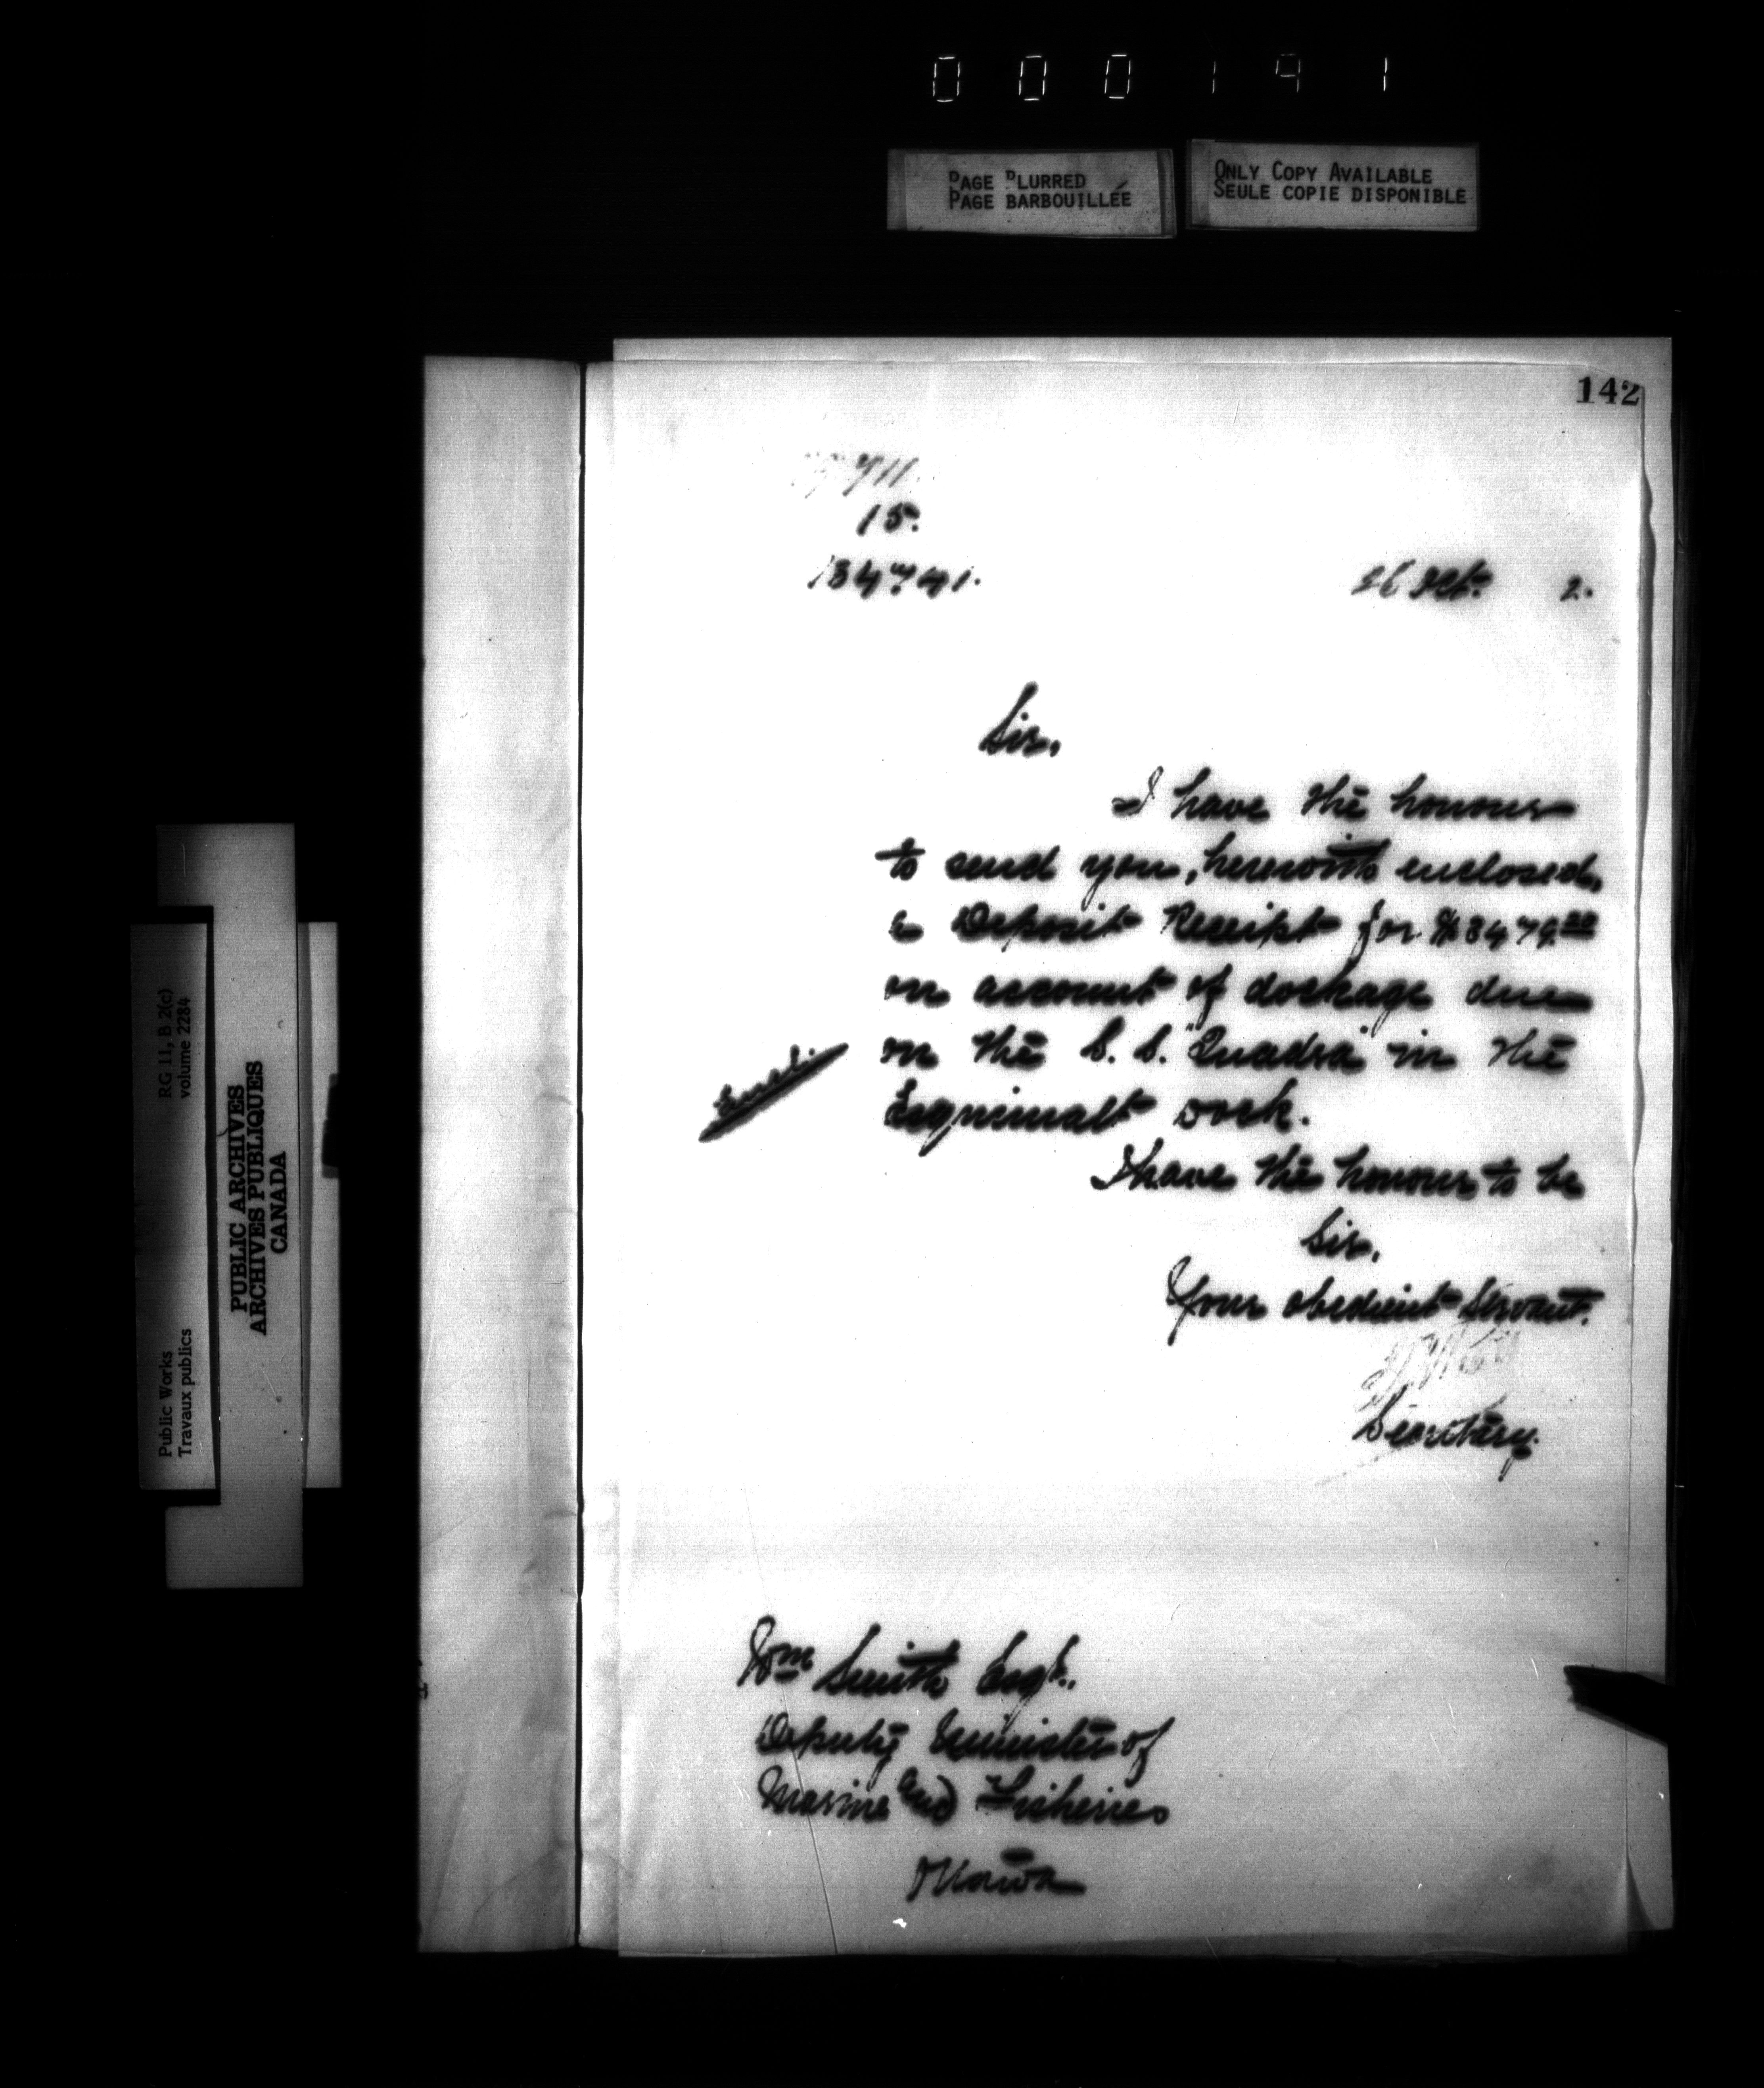 000191
PAGE BLURRED
PAGE BARBOUILLÉE
ONLY COPY AVAILABLE
SEULE COPIE DISPONIBLE
142
15.
134741.
26 Oct. 2.
Sir,
I have the honour
to send you, herewith enclosed,
a Deposit Receipt for $
on account of dockage due
on the S.S. "Quadra" in the
Esquimalt Dock.
Encl.
I have the honour to be
Sir,
Your obedient Servant.
Secretary.
Wm Smith Esqr.,
Deputy Minister of
Marine and Fisheries
Ottawa
RG 11, B 2(c)
volume 2284
PUBLIC ARCHIVES
ARCHIVES PUBLIQUES
CANADA
Public Works
Travaux publics